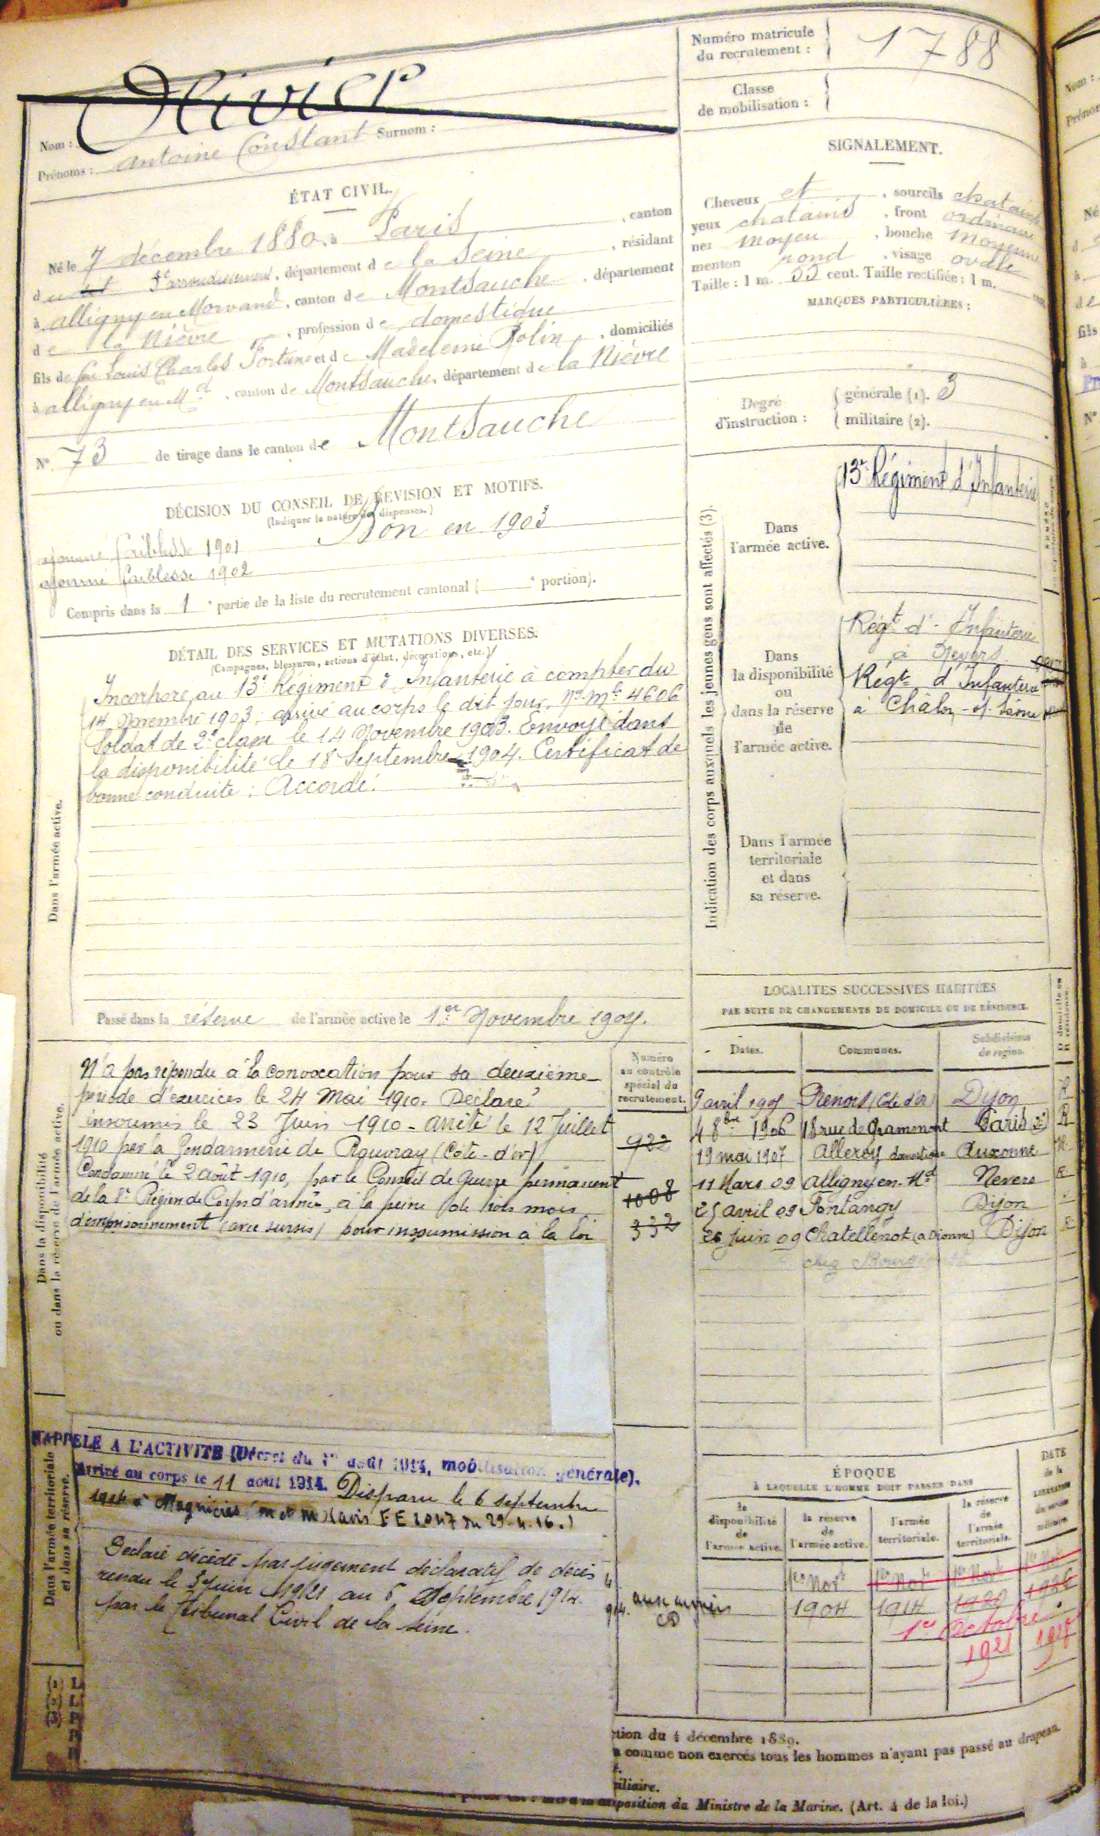 Olivier
Nom :
Prénoms : Antoine Constant Surnom :
Numéro matricule
du recrutement : 1788
Classe
de mobilisation :
ÉTAT CIVIL.
Né le 7 décembre 1880, à Paris, canton
d 5e arrondissement, département de la Seine, résidant
à Alligny en Morvand, canton de Montsauche, département
de la Nièvre, profession de domestique
fils de feu Louis Charles Fortuné et de Madeleine Rolin, domiciliés
à Alligny en Md, canton de Montsauche, département de la Nièvre
N° 73 de tirage dans le canton de Montsauche
SIGNALEMENT.
Cheveux et, sourcils chatains
yeux chatains, front ordinaire
nez moyen, bouche moyenne
menton rond, visage ovale
Taille : 1 m. 55 cent. Taille rectifiée : 1 m. cent.
MARQUES PARTICULIÈRES :
Degré
d'instruction :
générale (1). 3
militaire (2).
DÉCISION DU CONSEIL DE REVISION ET MOTIFS.
(Indiquer la nature des dispenses.)
Bon en 1903
ajourné faiblesse 1901
ajourné faiblesse 1902
Compris dans la 1 e partie de la liste du recrutement cantonal ( e portion).
DÉTAIL DES SERVICES ET MUTATIONS DIVERSES.
(Campagnes, blessures, actions d'éclat, décorations, etc.)
Dans l'armée active.
Incorporé au 13e Régiment d'Infanterie à compter du
14 Novembre 1903, arrivé au corps le dit jour, No Mle 4606
Soldat de 2e classe le 14 Novembre 1903. Envoyé dans
la disponibilité le 18 Septembre 1904. Certificat de
bonne conduite : Accordé.
Passé dans la réserve de l'armée active le 1er Novembre 1904.
Indication des corps auxquels les jeunes gens sont affectés (3).
Dans
l'armée active.
13e Régiment d'Infanterie
Dans
la disponibilité
ou
dans la réserve
de
l'armée active.
Régt d'Infanterie
à Nevers
Régt d'Infanterie
à Châlon-s/-Saône
Dans l'armée
territoriale
et dans
sa réserve.
Dans la disponibilité
ou dans la réserve de l'armée active.
N'a pas répondu à la convocation pour sa deuxième
période d'exercices le 24 Mai 1910. Déclaré
insoumis le 23 Juin 1910 - arrêté le 12 Juillet
1910 par la Gendarmerie de (Côte-d'or)
Condamné le 2 août 1910, par le Conseil de Guerre permanent
de la 8e Région de Corps d'armée, à la peine de trois mois
d'emprisonnement (avec sursis) pour insoumission à la loi
Numéro
au contrôle
spécial du
recrutement.
922
1008
332
LOCALITÉS SUCCESSIVES HABITÉES
PAR SUITE DE CHANGEMENTS DE DOMICILE OU DE RÉSIDENCE.
Dates. Communes. Subdivisions
de région.
9 avril 1905 Prenois (Côte d'or) Dijon R
4 8bre 1906 18 rue de Gramont Paris R
19 mai 1907 Allerey domestique Auxonne R
11 Mars 09 Alligny-en-Md Nevers
25 avril 09 Fontangy Dijon
26 Juin 09 Chatellenot (a Dionne) Dijon
chez
Dans l'armée territoriale
et dans sa réserve.
RAPPELÉ A L'ACTIVITÉ (Décret du 1er août 1914, mobilisation générale).
Arrivé au corps le 11 août 1914. Disparu le 6 septembre
1914 à Magnières (M et M) (avis F E 2047 du 29.4.16.)
Déclaré décédé par jugement déclaratif de décès
rendu le 3 Juin 1921 au 6 Septembre 1914.
par le Tribunal Civil de la Seine.
aux armées
CD
ÉPOQUE
À LAQUELLE L'HOMME DOIT PASSER DANS
la
disponibilité
de
l'armée active.
la réserve
de
l'armée active.
l'armée
territoriale.
la réserve
de
l'armée
territoriale.
DATE
de la
LIBÉRATION
du service
militaire.
1er Nov 1er Nov 1er Nov 1er Nov
1904 1914 1920 1926
1er Octobre
1921
ction du 4 décembre 1889.
comme non exercés tous les hommes n'ayant pas passé au drapeau.
iliaire.
disposition du Ministre de la Marine. (Art. 4 de la loi.)